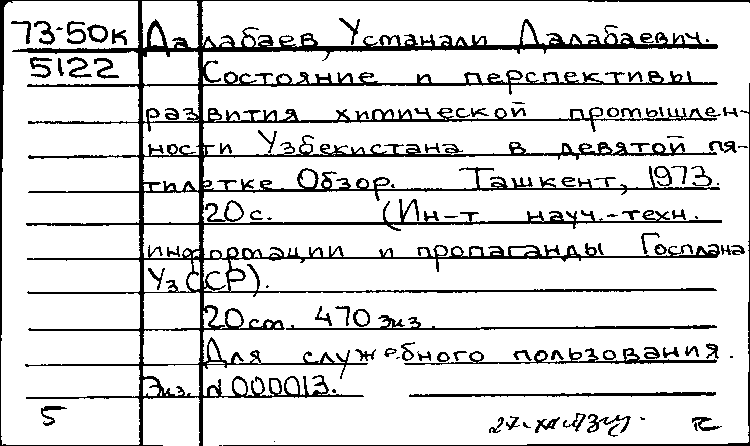 73-50к Далабаев, Устанали Далабаевич.
5122 Состояние и перспективы
развития химической промышлен-
ности Узбекистана в девятой пя-
тилетке Обзор. Ташкент, 1973.
20с. (Ин-т науч.-техн.
информации и пропаганды Госплана
УзССР).
20см. 470 экз.
Для служебного пользования.
Экз. №000013.
5